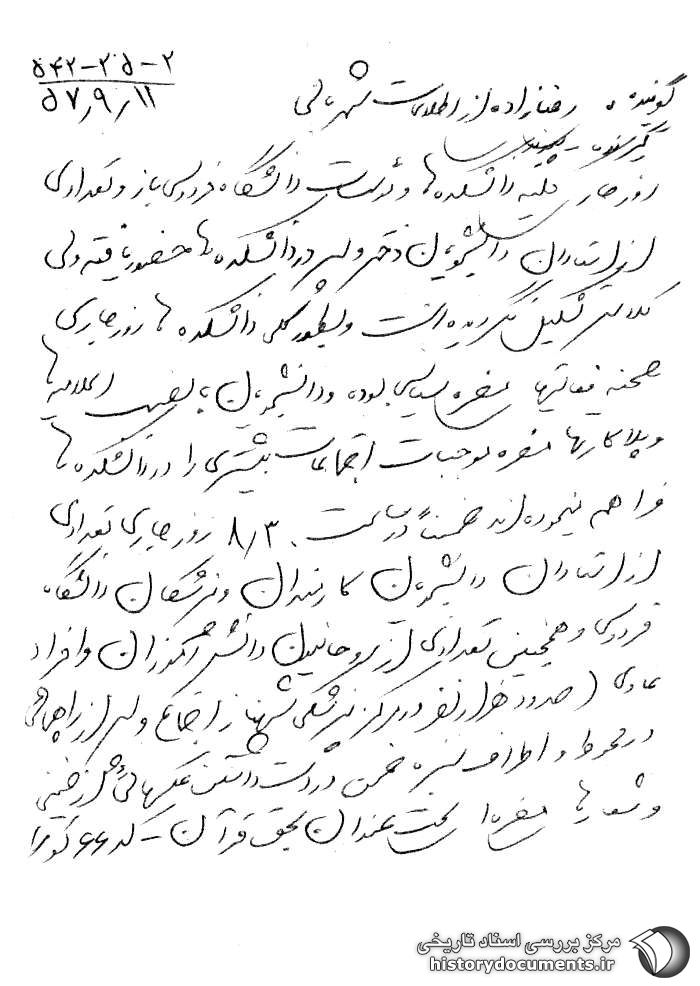 ۵۴۲-۲۵-۲
۵۷٫۹٫۱۱
گوینده. رضازاده از اطلاعات شهربانی
گیرنده-
روزجاری کلیه دانشکده‌ها و موسسات دانشگاه فردوسی باز و تعدادی
از استادان دانشجویان دختر و پسر در دانشکده‌ها حضور یافته ولی
کلاسی تشکیل نگردیده است و بطور کلی دانشکده‌ها روز جاری
صحنه فعالیتها مضره سیاسی بوده و دانشجویان با نصب اعلامیه‌ها
و پلاکارتها مضره موجبات اجتماعات بیشتری را در دانشکده‌ها
فراهم نیموده‌اند ضمناً در ساعت ۸/۳۰ روز جاری تعدادی
از استادان دانشجویان کارمندان و پزشکان دانشگاه
فردوسی و همچنین تعدادی از روحانیون دانش آموزان و افراد
عادی (حدود هزار نفر در مرکز پزشکی شهناز اجتماع و پس از راهپیمائی
در محوطه و اطراف ضمن در دست داشتن عکسهائی از خمینی
و شعارها مضره‌ای تحت عنوان بحق قرآن -
مرکز بررسی اسناد تاریخی
historydocuments.ir